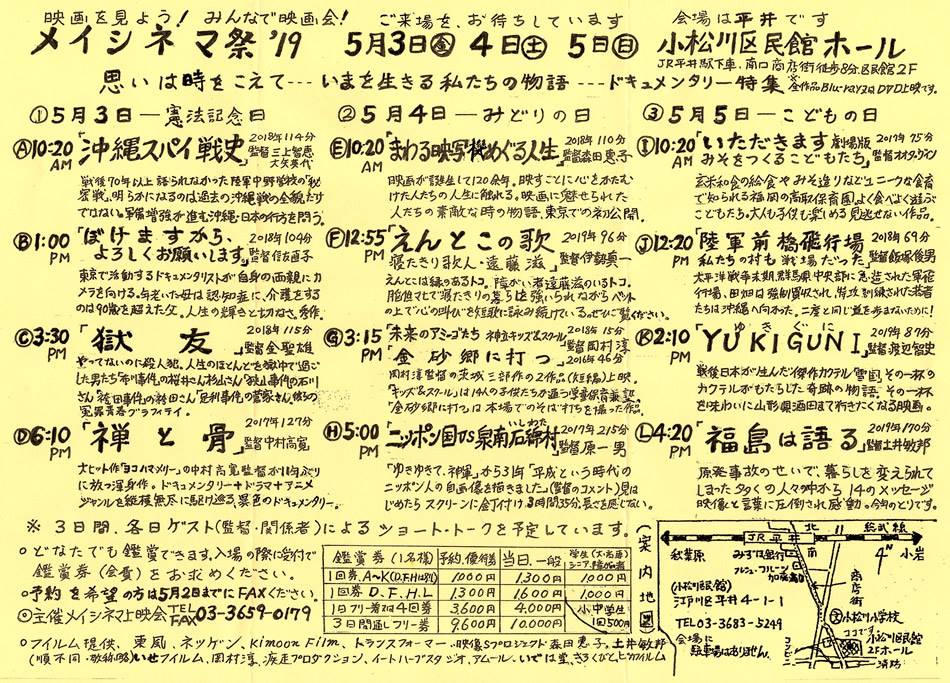 映画を見よう！ みんなで映画会！ ご来場を、お待ちしています 会場は平井です
メイシネマ祭'19 5月3日㊎ 4日㊏ 5日㊐ 小松川区民館ホール
JR平井駅下車、南口商店街徒歩8分、区民館2F
思いは時をこえて---いまを生きる私たちの物語---ドキュメンタリー特集
※全作品Blu-ray又はDVD上映です。
①5月3日—憲法記念日
Ⓐ10:20 AM 「沖縄スパイ戦史」 2018年114分 監督三上智恵 大矢英代
戦後70年以上語られなかった陸軍中野学校の「秘
密戦」、明らかになるのは過去の沖縄戦の全貌だけ
ではない。軍備増強が進む沖縄・日本の行方を問う。
Ⓑ1:00 PM 「ぼけますから、よろしくお願いします。」 2018年104分 監督信友直子
東京で活動するドキュメンタリストが自身の両親にカ
メラを向ける。年老いた母は認知症に、介護をする
のは90歳を超えた父。人生の輝きと切なさ。秀作。
Ⓒ3:30 PM 「獄友」 2018年115分 監督金聖雄
やってないのに殺人犯。人生のほとんどを獄中で過ご
した男たち。布川事件の桜井さん杉山さん「狭山事件の石川
さん「袴田事件」の袴田さん「足利事件の菅家さん。彼らの
冤罪青春グラフィティ。
Ⓓ6:10 PM 「禅と骨」 2017年127分 監督中村高寛
大ヒット作「ヨコハマメリー」の中村高寛監督が11年ぶり
に放つ渾身作。ドキュメンタリー+ドラマ+アニメ
ジャンルを縦横無尽に駆け巡る、異色のドキュメンタリー。
②5月4日—みどりの日
Ⓔ10:20 AM 「まわる映写機めぐる人生」 2018年110分 監督森田恵子
映画が誕生して120余年。映すことに心をかたむ
けた人たちの人生に触れる。映画に魅せられた
人たちの素敵な時の物語、東京での初公開。
Ⓕ12:55 PM 「えんとこの歌 寝たきり歌人・遠藤滋」 2019年96分 監督伊勢真一
えんとこは縁のあるトコ。障がい者遠藤滋のいるトコ。
脳性マヒで寝たきりの暮らしを強いられながらベットの
上で「心の叫び」を短歌に詠み続けている。ぜひご覧ください。
Ⓖ3:15 PM 「未来のアミーゴたち 神栖キッズ&スクール」 2018年15分 監督岡村淳
「金砂郷に打つ」 2016年46分
岡村淳監督の茨城三部作の2作品(短編)上映。
「キッズ&スクール」は14人の子供たちが通う学童保育兼塾。
「金砂郷に打つ」は本場でのそば打ちを撮った作品。
Ⓗ5:00 PM 「ニッポン国VS泉南石綿村」 いしわた 2017年215分 監督原一男
「ゆきゆきて、神軍」から31年「平成という時代の
ニッポン人の自画像を描きました。」(監督のコメント)見は
じめたらスクリーンに釘付け。3時間35分、長さを感じない。
③5月5日—こどもの日
Ⓘ10:20 AM 「いただきます 劇場版 みそをつくるこどもたち」 2019年75分 監督オオタヴィン
玄米和食の給食やみそ造りなどユニークな食育
で知られる福岡の高取保育園。よく食べよく遊ぶ
こどもたち。大人も子供も楽しめる見逃せない作品。
Ⓙ12:20 PM 「陸軍前橋飛行場 私たちの村も戦場だった」 2018年69分 監督飯塚俊男
太平洋戦争末期、群馬県中央部に急造された軍飛
行場、田畑は強制買収され、特攻訓練された若者
たちは沖縄へ向かった。二度と同じ道を歩まないために!
Ⓚ2:10 PM 「YUKIGUNI」 ゆきぐに 2019年87分 監督渡辺智史
戦後日本が生んだ傑作カクテル「雪国」その一杯の
カクテルがもたらした奇跡の物語。その一杯
を味わいに山形県酒田まで行きたくなる映画。
Ⓛ4:20 PM 「福島は語る」 2019年170分 監督土井敏邦
原発事故のせいで、暮らしを変えられて
しまった多くの人々の中から14のメッセージ
映像と言葉に圧倒され感動。今のとりです。
※3日間、各日ゲスト(監督・関係者)によるショート・トークを予定しています。
○どなたでも鑑賞できます。入場の際に受付で
鑑賞券(会費)をお求めください。
○予約を希望の方は5月2日までにFAXください。
◎主催メイシネマ上映会 TEL FAX 03-3659-0179
鑑賞券(1名様) 予約、優待 当日、一般 学生(大・高・専)シニア、障がい者
1回券、A〜K(D.F.Hは別) 1000円 1,300円 1000円
1回券 D.F.H.L 1300円 1600円 1,000円
1日フリー券は4回券 3,600円 4,000円 小中学生
3日間通しフリー券 9,600円 10,000円 1回500円
○フィルム提供、東風、ネツゲン、kimoon Film、トランスフォーマー、映像&プロジェクト森田恵子。土井敏邦
(順不同・敬称略)いせフィルム、岡村淳、疾走プロダクション、イートハーブスタジオ、アムール、いでは堂、きろくびと、ヒカリフィルム
(案内地図)
北 総武線
JR平井
秋葉原 みずほ銀行 南 4N 小岩
(小松川区民館)
江戸川区平井4-1-1
TEL03-3683-5249
会場に
駐車場はありません。
商店街
小松川小学校
ココです。
小松川区民館
2Fホール
消防